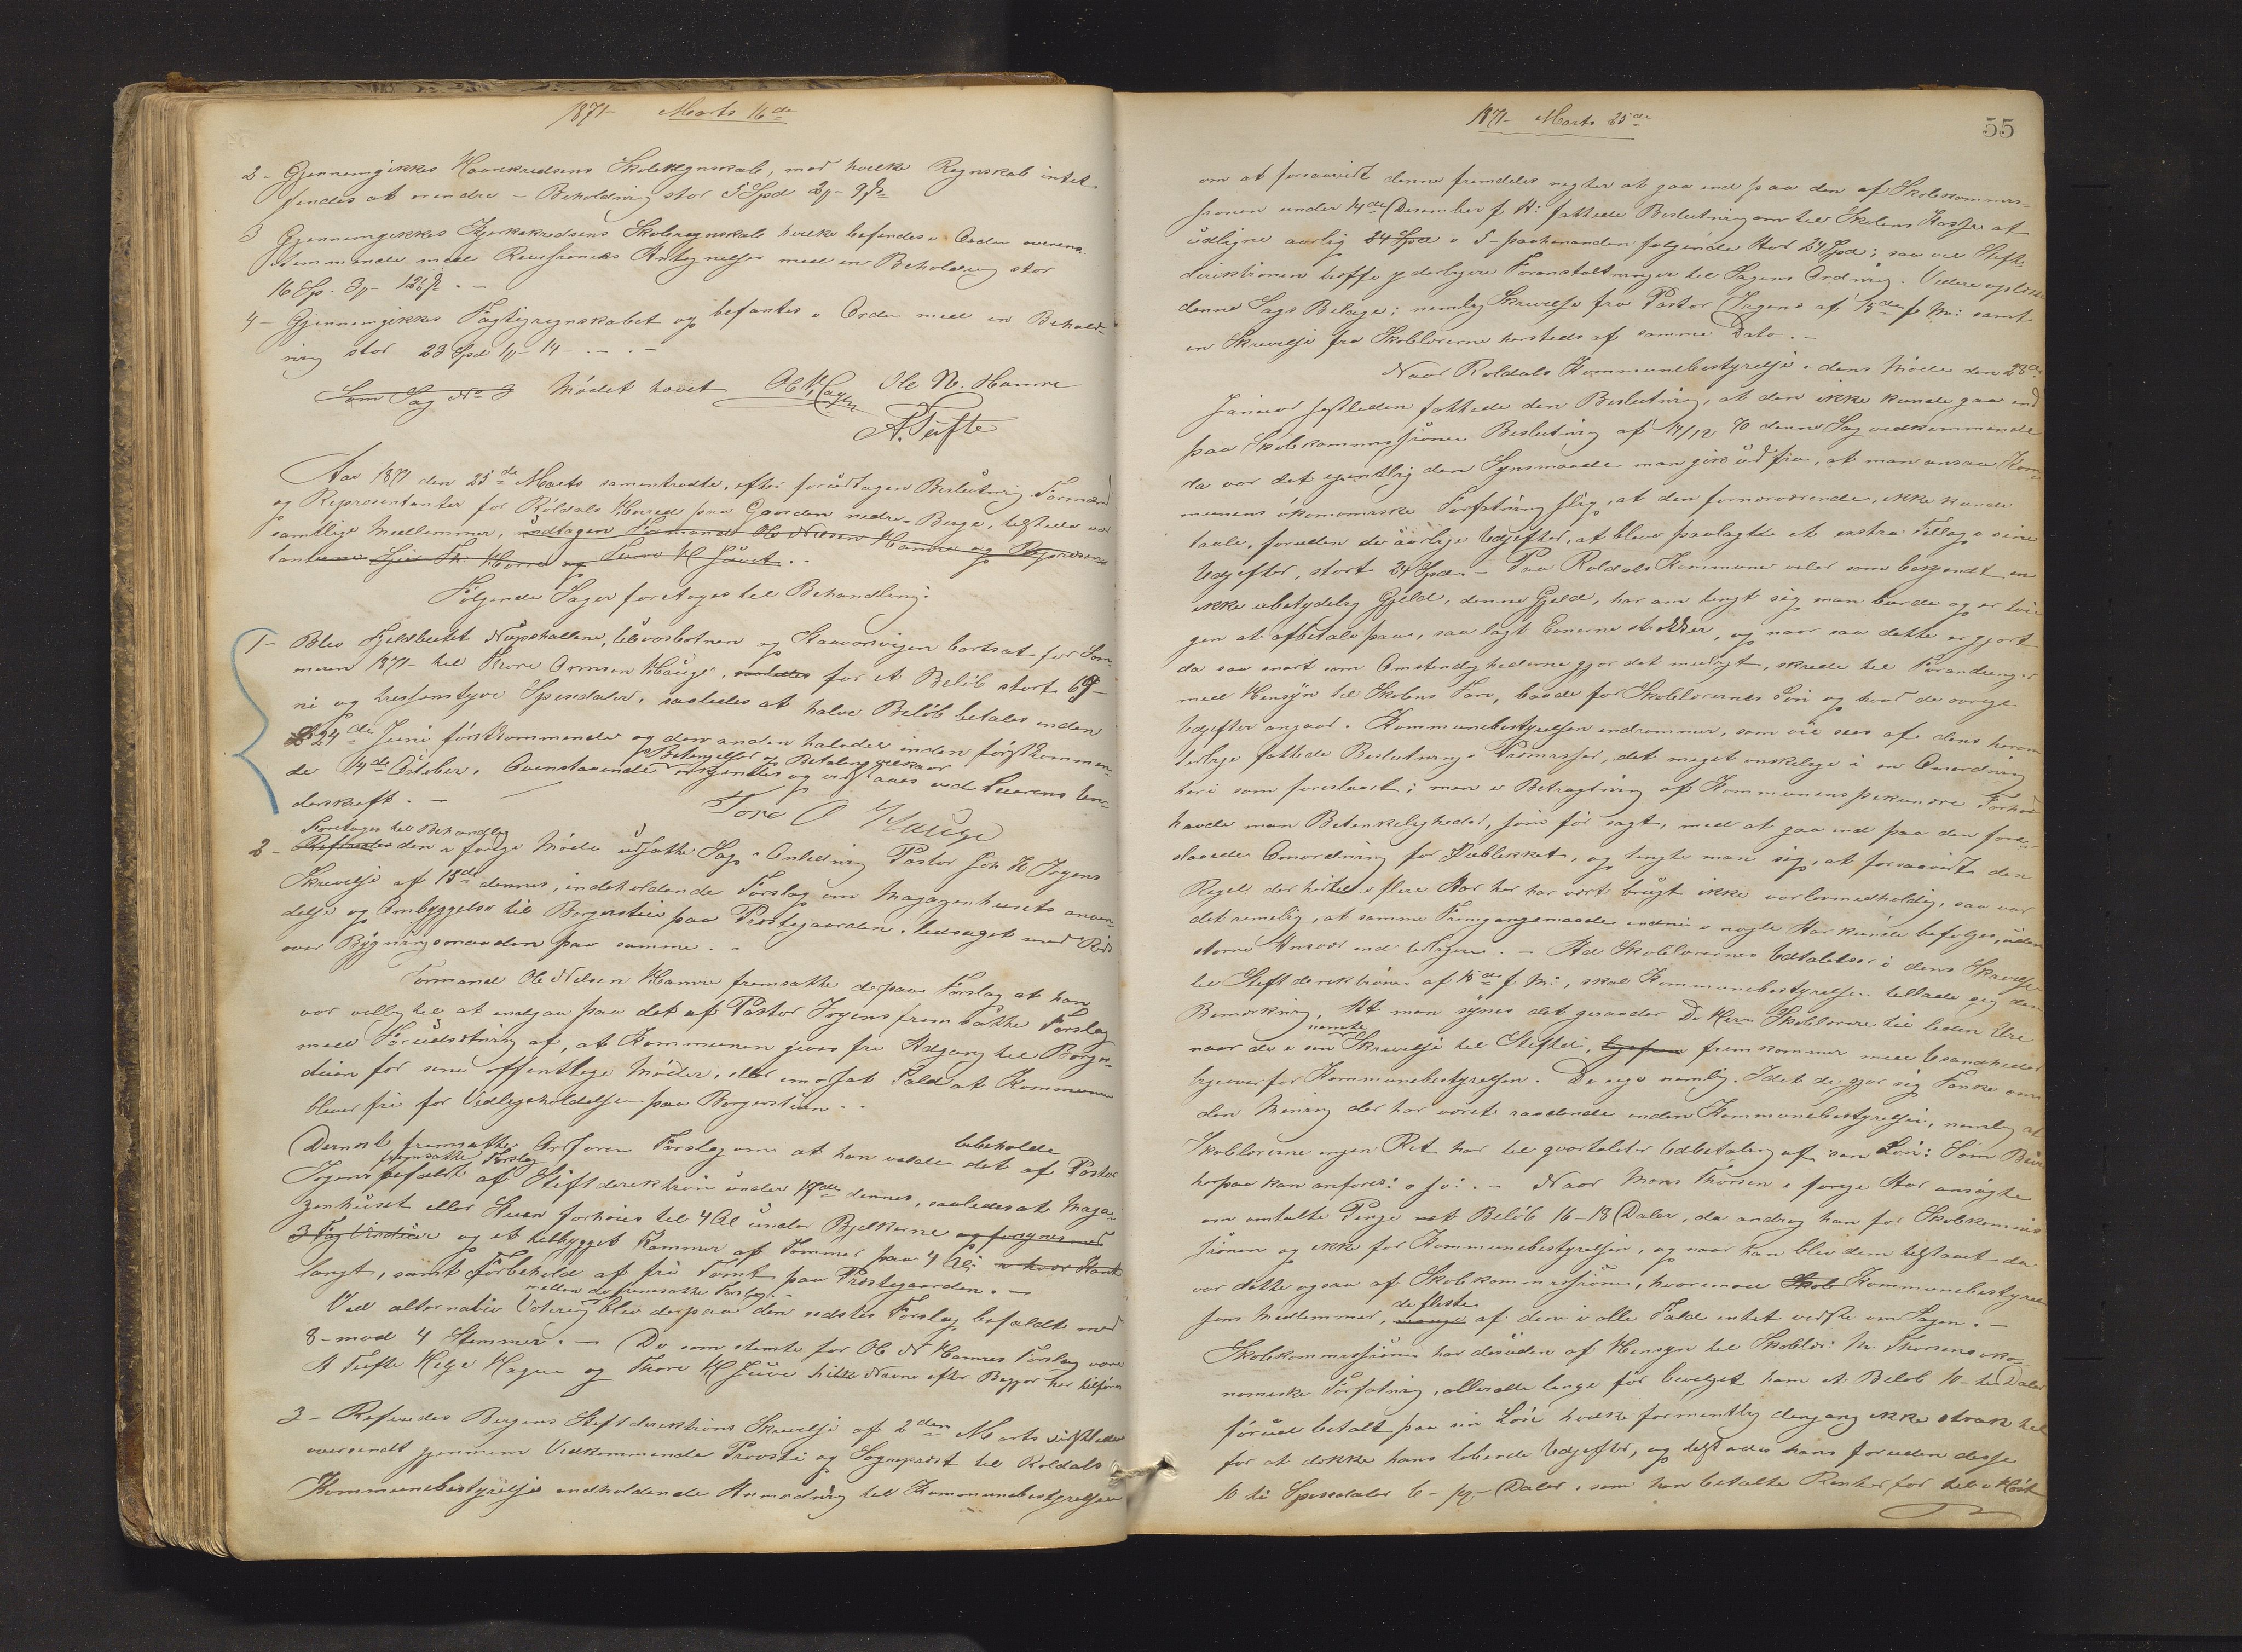 1871 Marts 16de
2 - Gjennemgikkes Haarekredsens Skoleregnskab, mod hvilke Regnskab intet
findes at erindre - Beholdning stor 5 Spd 2 - 9 s
3 Gjennemgikkes Kjerkekredsens Skoleregnskab hvilke befindes i Orden overens-
stemmende med Revisionens Antegnelser med en Beholdning stor
16 Sp. 3 - 12 s. -
4 - Gjennemgikkes Fattigregnskabet og befantes i Orden med en Behold-
ning stor 23 Spd 1 - 14 - . - . -
Som Sag No 3 Mødet hævet Ole N. Hamre
A. Tufte
Aar 1871 den 25de Marts samentraadte, efter forudtagen Beslutning Formænd
og Representanter for Røldals Herred paa Gaarden nedre-Berge, tilstede var
samtlige Medlemmer, undtagen Formand Ole Nilsen Hamre og Represen-
tanterne Thore H Juvet . .
Følgende Sager foretoges til Behandling:
1 - Blev Fjeldbeitet Nupshallerne, Ulevosbotnen og Staavosvigen bortsat for Som-
meren 1871 til Thore Ormsen Hauge, saaledes for et Beløb stort 69 -
ni og tressenstyve Spesidaler, saaledes at halve Beløb betales inden
24de Juni førstkommende og den anden halvdel inden førstkommen-
de 14de October. Ovenstaaende Betingelser og Betalingsvilkaar vedstaaes ved Leierens Un-
derskrift. -
Tore O Hauge
2 - Refereres Foretages til Behandling den i forige Møde udsatte Sag i Anledning Pastor Joh K Irgens
Skrivelse af 15de dennes, indeholdende Forslag om Magazinhusets anven-
delse og Ombyggelse til Borgerstue paa Prestegaarden. Ledsaget med Rids
over Bygningsmaaden paa samme. -
Formand Ole Nilsen Hamre fremsatte derpaa Forslag at han
var villig til at indgaa paa det af Pastor Irgens fremsatte Forslag
med Forudsætning af, at Kommunen gives fri Adgang til Borger-
stuen for sine offentlige Møder, eller i modsat Fald at Kommunen
bliver fri for Vedligeholdelsen paa Borgerstuen. .
Dernest fremsatte Ordføren Forslag om at han vilde bebeholde det af Pastor
Irgens fremsatte Forslag befalt af Stiftdirektion under 17de dennes, saaledes at Maga-
zinhuset eller Stuen forhøies til 4 Al under Bjelkerne og forsynes med
3 Fag Vinduer og et tilbygget Kammer af Tømmer paa 4 Al: i hver Kant
langt, samt Forbehold af fri Tomt paa Prestegaarden. -
Ved alternativ Votering mellem de fremsatte Forslag blev derpaa den sidstes Forslag befaldt med
8 - mod 4 Stemmer. - De som stemte for Ole N Hamres Forslag vare
A Tufte Helge Hagen og Thore H Juve hvilke Navne efter Begjær her tilføres
3 - Referedes Bergens Stiftdirektions Skrivelse af 2den Marts sidstleden
oversendt gjennem Vedkommende Provsti og Sogneprest til Røldals
Kommunebestyrelse indholdende Anmodning til Kommunebestyrelsen
1871 Marts 25de
55
om at forsaavidt denne fremdeles negter at gaa ind paa den af Skolekommis-
sionen under 14de Desember f A: fattede Beslutning om til Skolens Kasse at
udligne aarlig 24 Spd i 5 - paahinanden følgende Aar 24 Spd; saa vil Stift-
direktionen træffe yderligere Foranstaltninger til Sagens Ordning. Videre oplæstes
denne Sags Bilage; nemlig Skrivelse fra Pastor Irgens af 15de f M: samt
en Skrivelse fra Skolelærerne hersteds af samme Dato. -
Naar Røldals Kommunebestyrelse i dens Møde den 28de
Januar sistleden fattede den Beslutning, at den ikke kunde gaa ind
paa Skolekommissionens Beslutning af 14/12 70 denne Sag vedkommende
da var det egentlig den Synsmaade man gik ud fra, at man ansaa Kom-
munens økonomiske Forfatning slig, at den fornærværende, ikke kunde
taale, foruden de aarlige Udgifter, at blive paalagte et exstra Tillæg i sine
Udgifter, stort 24 Spd. - Paa Røldals Kommune viler som bekjendt en
ikke ubetydelig Gjeld, denne Gjeld, har om tengt sig man burde og er tvun-
gen at afbetale paa, saa lagt Evnerne strekker, og naar saa dette er gjort
da saa snart som Omstendighederne gjør det muligt, skride til Forandringer
med Hensyn til Skolens Tarv, baade for Skolelærernes Løn og hvad de øvrige
Udgifter angaar. Kommunebestyrelsen indrømmer, som vil sees af dens herom
tidlige fattede Beslutnings Premisser, det meget ønskelige i en Omordning
heri som foreslaaet; men i Betragtning af Kommunens pekuniære Forhold
havde man Betenkeligheder, som før sagt, med at gaa ind paa den fore-
slaaede Omordning for Øieblikket, og tengte man sig, at forsaavidt den
Regel der hidtil i flere Aar her har vært brugt ikke var lovmedholdig, saa var
det rimelig, at samme Fremgangsmaade endnu i nogle Aar kunde befølges, uden
større Ansvar end tidligere. - Ad Skolelærernes Udtalelser i dens Skrivelse
til Stiftdirektionen af 15de f M:, skal Kommunebestyrelsen tillade sig den
Bemerkning, At man synes det geraader De Herr Skolelærere til liden Ære
naar de i sin nævnte Skrivelse til Stiftdi, fremkommer med Usandheder
ligeoverfor Kommunebestyrelsen. De sige nemlig. Idet de gjør sig Tanke om
den Mening der har været raadende inden Kommunebestyrelsen, nemlig at
Skolelærerne ingen Ret har til qvartalvis Udbetaling af sin Løn: Som Bevis
herpaa kan anføres: o s v: . - Naar Mons Thorsen i forige Aar ansøgte
om omtalte Penge et Beløb 16 - 18 Daler, da androg han for Skolekommis-
sionen og ikke for Kommunebestyrelsen, og naar han blev dem tilstaaet da
var dette ogsaa af Skolekommissionen, hvorimod Skole Kommunebestyrel-
sens Medlemmer, mange de fleste af dem i alle Fald intet vidste om Sagen. -
Skolekommissionen har desuden af Hensyn til Skolelæ: M. Thorsens øko-
nomiske Forfatning, allerede lenge før bevilget ham et Beløb 10 - ti Daler
forud betalt paa sin Løn hvilke formentlig dengang ikke strak til
for at dekke hans løbende Udgifter, og tilstodes hans foruden disse
10 ti Spesidaler 6 - Daler, som han betalte Renter for til